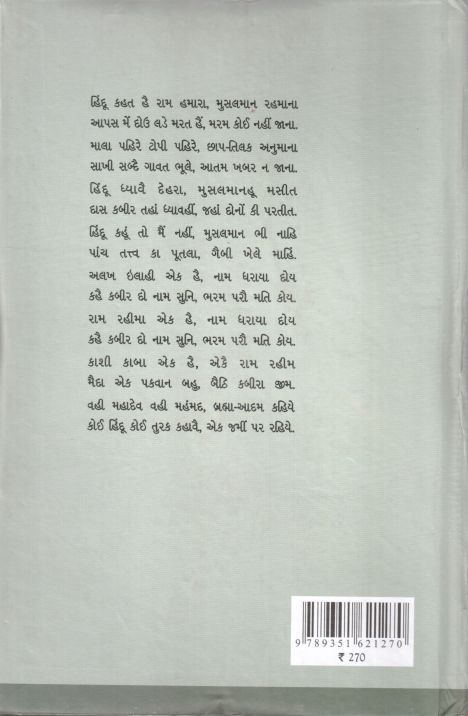 હિંદૂ કહત હૈ રામ હમારા, મુસલમાન રહમાના
આપસ મેં દોઉ લડે મરત હૈં, મરમ કોઈ નહીં જાના.
માલા પહિરે ટોપી પહિરે, છાપ-તિલક અનુમાના
સાખી સબ્દૈ ગાવત ભૂલે, આતમ ખબર ન જાના.
હિંદૂ ધ્યાવૈ દેહરા, મુસલમાનહૂ મસીત
દાસ કબીર તહાં ધ્યાવહીં, જહાં દોનોં કી પરતીત.
હિંદૂ કહૂં તો મૈં નહીં, મુસલમાન ભી નાહિ
પાંચ તત્ત્વ કા પૂતલા, ગૈબી ખેલે માહિં.
અલખ ઇલાહી એક હૈ, નામ ધરાયા દોય
કહૈ કબીર દો નામ સુનિ, ભરમ પરૌ મતિ કોય.
રામ રહીમા એક હૈ, નામ ધરાયા દોય
કહૈ કબીર દો નામ સુનિ, ભરમ પરૌ મતિ કોય.
કાશી કાબા એક હૈ, એકૈ રામ રહીમ
મૈદા એક પકવાન બહુ, બૈઠિ કબીરા જીમ.
વહી મહાદેવ વહી મહંમદ, બ્રહ્મા-આદમ કહિયે
કોઈ હિંદૂ કોઈ તુરક કહાવૈ, એક જમીં પર રહિયે.
9 789351 621270
₹ 270